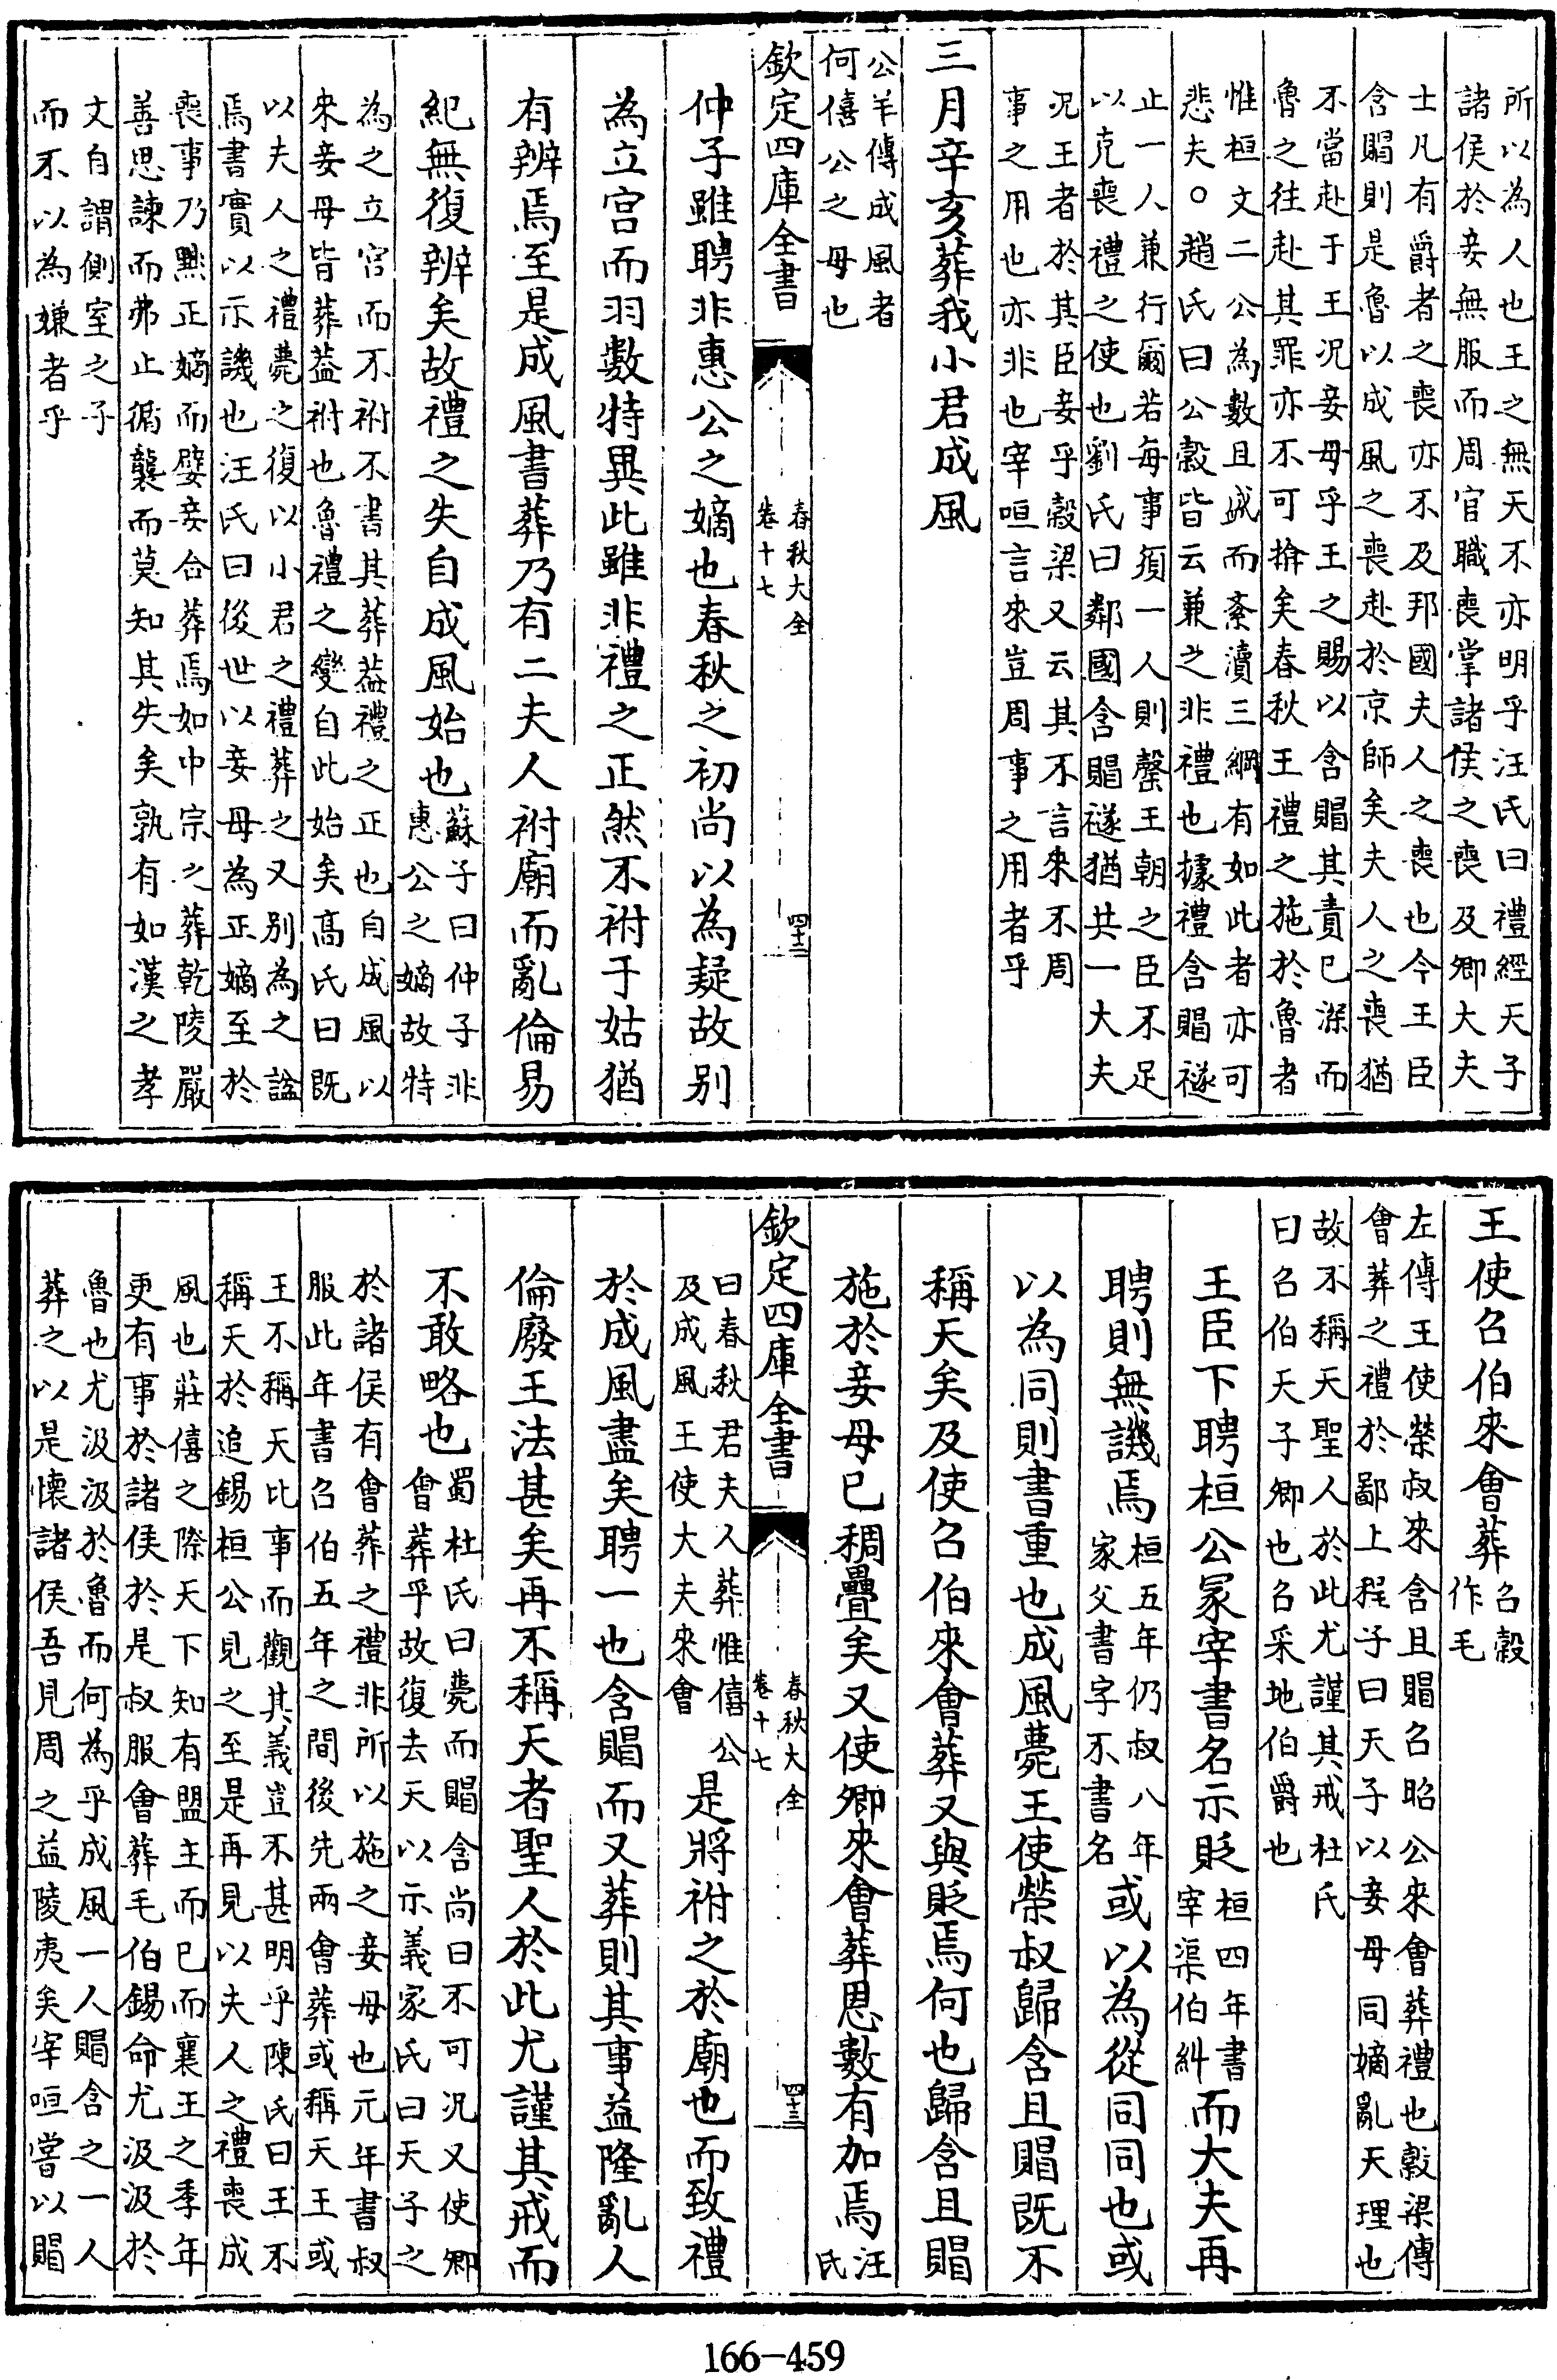 所以為人也王之無天不亦明乎汪氏曰禮經天子
諸侯於妾無服而周官職喪掌諸侯之喪及卿大夫
士凡有爵者之喪亦不及邦國夫人之喪也今王臣
含賵則是魯以成風之喪赴於京師矣夫人之喪猶
不當赴于王况妾母乎王之賜以含賵其責已深而
魯之往赴其罪亦不可揜矣春秋王禮之施於魯者
惟桓文二公為數且盛而紊瀆三綱有如此者亦可
悲夫○趙氏曰公穀皆云兼之非禮也據禮含賵襚
止一人兼行爾若每事須一人則罄王朝之臣不足
以克喪禮之使也劉氏曰鄰國含賵襚猶共一大夫
况王者於其臣妾乎穀梁又云其不言來不周
事之用也亦非也宰咺言來豈周事之用者乎
三月辛亥葬我小君成風
公羊傳成風者
何僖公之母也
欽定四庫全書
春秋大全
卷十七
四十二
仲子雖聘非惠公之嫡也春秋之初尚以為疑故别
為立宫而羽數特異此雖非禮之正然不祔于姑猶
有辨焉至是成風書葬乃有二夫人祔廟而亂倫易
紀無復辨矣故禮之失自成風始也
蘇子曰仲子非
惠公之嫡故特
為之立宫而不祔不書其葬葢禮之正也自成風以
來妾母皆葬葢祔也魯禮之變自此始矣高氏曰既
以夫人之禮薨之復以小君之禮葬之又别為之諡
焉書實以示譏也汪氏曰後世以妾母為正嫡至於
喪事乃黜正嫡而嬖妾合葬焉如中宗之葬乾陵嚴
善思諫而弗止循襲而莫知其失矣孰有如漢之孝
文自謂側室之子
而不以為嫌者乎
王使召伯來會葬
召穀
作毛
左傳王使榮叔來含且賵召昭公來會葬禮也穀梁傳
會葬之禮於鄙上程子曰天子以妾母同嫡亂天理也
故不稱天聖人於此尤謹其戒杜氏
曰召伯天子卿也召采地伯爵也
王臣下聘桓公冢宰書名示貶
桓四年書
宰渠伯糾
而大夫再
聘則無譏焉
桓五年仍叔八年
家父書字不書名
或以為從同同也或
以為同則書重也成風薨王使榮叔歸含且賵既不
稱天矣及使召伯來會葬又與貶焉何也歸含且賵
施於妾母已稠疊矣又使卿來會葬恩數有加焉
汪
氏
曰春秋君夫人葬惟僖公
及成風王使大夫來會
是將祔之於廟也而致禮
欽定四庫全書
春秋大全
卷十七
四十三
於成風盡矣聘一也含賵而又葬則其事益隆亂人
倫廢王法甚矣再不稱天者聖人於此尤謹其戒而
不敢略也
蜀杜氏曰薨而賵含尚曰不可况又使卿
會葬乎故復去天以示義家氏曰天子之
於諸侯有會葬之禮非所以施之妾母也元年書叔
服此年書召伯五年之間後先兩會葬或稱天王或
王不稱天比事而觀其義豈不甚明乎陳氏曰王不
稱天於追錫桓公見之至是再見以夫人之禮喪成
風也莊僖之際天下知有盟主而已而襄王之季年
更有事於諸侯於是叔服會葬毛伯錫命尤汲汲於
魯也尤汲汲於魯而何為乎成風一人賵含之一人
葬之以是懷諸侯吾見周之益陵夷矣宰咺嘗以賵
166-459